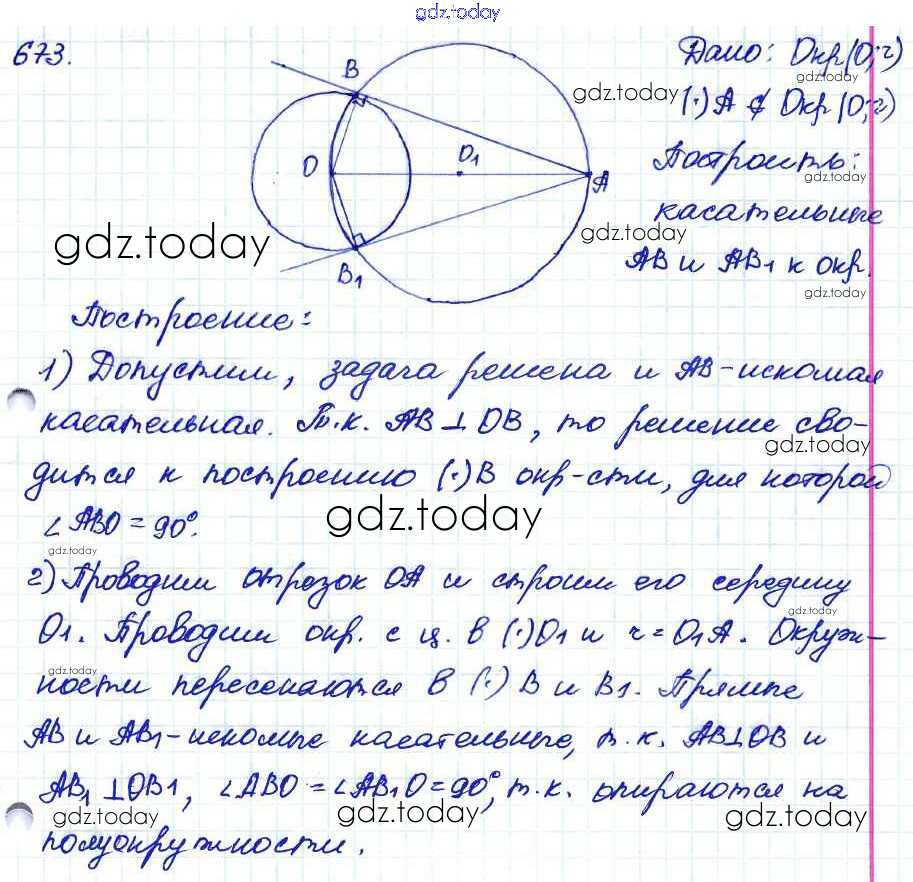 gdz.today
673.
Дано: Окр(O; r)
(·) A ∉ Окр(O; r)
Построить:
касательные
AB и AB₁ к окр.
B
O
O₁
A
B₁
gdz.today
gdz.today
gdz.today
gdz.today
gdz.today
gdz.today
Построение:
1) Допустим, задача решена и AB-искомая
касательная. Т.к. AB ⊥ OB, то решение сво-
gdz.today
дится к построению (·) B окр-сти, для которой
∠ABO = 90°.
gdz.today
gdz.today
2) Проводим отрезок OA и строим его середину
gdz.today
O₁. Проводим окр. с ц. в (·) O₁ и r = O₁A. Окруж-
gdz.today
ности пересекаются в (·) B и B₁. Прямые
AB и AB₁-искомые касательные, т.к. AB⊥OB и
AB₁ ⊥ OB₁, ∠ABO = ∠AB₁O = 90°, т.к. опираются на
gdz.today
gdz.today
gdz.today
полуокружности.